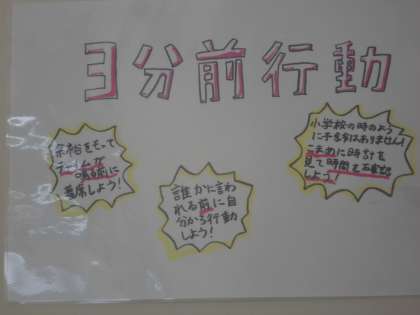 3分前行動
余裕をもって
チャイムが
鳴る前に
着席しよう！
誰かに言わ
れる前に自
分から行動
しよう！
小学校の時のよう
に予令はありません！
こまめに時計を
見て時間を確認
しよう！